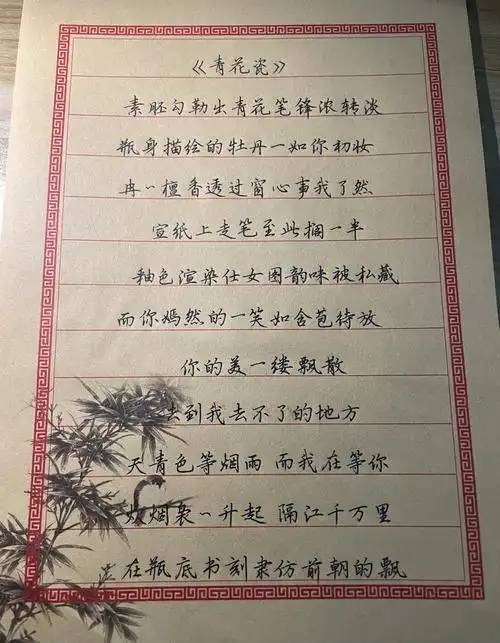 《青花瓷》
素胚勾勒出青花笔锋浓转淡
瓶身描绘的牡丹一如你初妆
冉〻檀香透过窗心事我了然
宣纸上走笔至此搁一半
釉色渲染仕女图韵味被私藏
而你嫣然的一笑如含苞待放
你的美一缕飘散
去到我去不了的地方
天青色等烟雨 而我在等你
炊烟袅〻升起 隔江千万里
在瓶底书刻隶仿前朝的飘